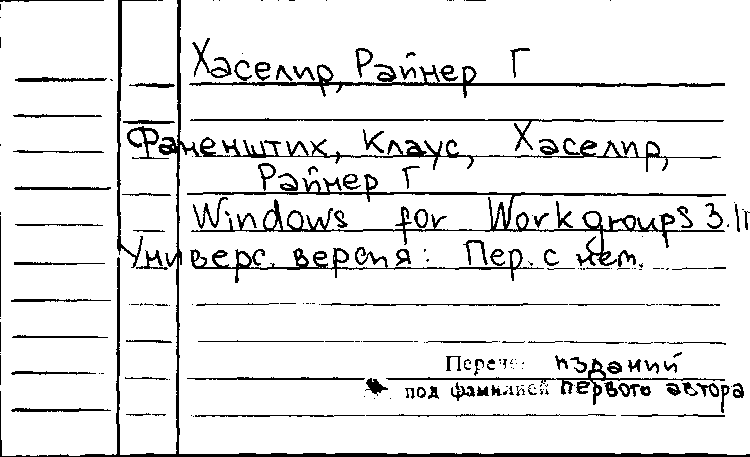 Хаселир, Райнер Г
Фаненштих, Клаус, Хаселир,
Райнер Г
Windows for Workgroups 3.11
Универс. версия: Пер. с нем.
Перечень изданий
под фамилией первого автора